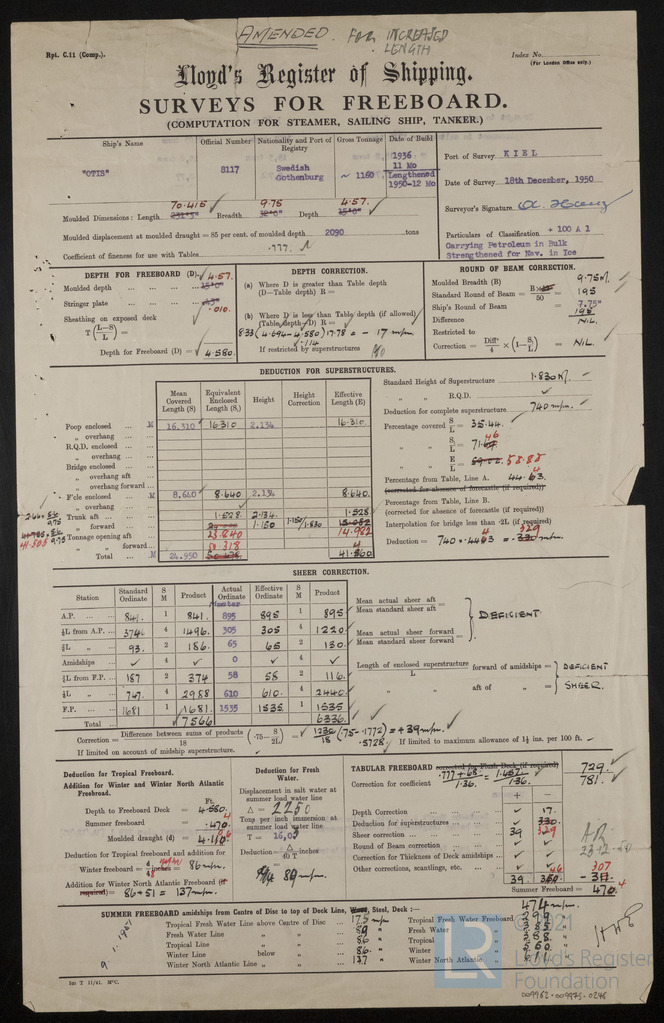 AMENDED. FOR INCREASED LENGTH
Rpt. C.11 (Comp.).
Index No.
(For London Office only.)
Lloyd's Register of Shipping.
SURVEYS FOR FREEBOARD.
(COMPUTATION FOR STEAMER, SAILING SHIP, TANKER.)
Ship's Name Official Number Nationality and Port of Registry Gross Tonnage Date of Build
"OTIS" 8117 Swedish Gothenburg ~ 1160 1936 11 Mo Lengthened 1950-12 Mo
Port of Survey KIEL
Date of Survey 18th December, 1950
Surveyor's Signature
Particulars of Classification + 100 A 1
Carrying Petroleum in Bulk
Strengthened for Nav. in Ice
70.415 9.75 4.57.
Moulded Dimensions: Length Breadth Depth
Moulded displacement at moulded draught = 85 per cent. of moulded depth 2090 tons
Coefficient of fineness for use with Tables .777.
DEPTH FOR FREEBOARD (D).
Moulded depth 4.57.
Stringer plate .010.
Sheathing on exposed deck
T (L-S/L) =
Depth for Freeboard (D) = 4.580.
DEPTH CORRECTION.
(a) Where D is greater than Table depth
(D-Table depth) R =
(b) Where D is less than Table depth (if allowed)
(Table depth-D) R =
8.33 (4.694 - 4.580) 17.78 = - 17 m/m
.114
If restricted by superstructures
ROUND OF BEAM CORRECTION.
Moulded Breadth (B) 9.75 M.
Standard Round of Beam = B×12/50 = 195
Ship's Round of Beam = 7.75"
195
Difference NIL.
Restricted to
Correction = Diff/4 × (1-S₁/L) = NIL.
DEDUCTION FOR SUPERSTRUCTURES.
Mean Covered Length (S) Equivalent Enclosed Length (S₁) Height Height Correction Effective Length (E)
Poop enclosed M 16.310 16.310 2.134 16.310
„ overhang
R.Q.D. enclosed
„ overhang
Bridge enclosed
„ overhang aft
„ overhang forward
F'cle enclosed M 8.640 8.640 2.134 8.640.
„ overhang
Trunk aft 1.528 2.134 1.528
„ forward 23.840 1.150 1.150/1.830 14.982
Tonnage opening aft
„ „ forward 50.318
Total M 24.950 41.460
Standard Height of Superstructure 1.830 M.
„ „ R.Q.D.
Deduction for complete superstructure 740 m/m.
Percentage covered S/L = 35.44.
„ „ S₁/L = 71.46
„ „ E/L = 58.88
Percentage from Table, Line A. 44.43.
(corrected for absence of forecastle (if required))
Percentage from Table, Line B.
(corrected for absence of forecastle (if required))
Interpolation for bridge less than ·2L (if required)
Deduction = 740 × .4443 = 329 m/m.
SHEER CORRECTION.
Station Standard Ordinate S M Product Actual Ordinate Effective Ordinate S M Product
A.P. 841. 1 841. 895 895 1 895
⅙L from A.P. 374 4 1496. 305 305 4 1220
⅓L „ 93. 2 186. 65 65 2 130.
Amidships 4 0 4
⅓L from F.P. 187 2 374 58 58 2 116.
⅙L „ 747. 4 2988 610 610. 4 2440.
F.P. 1681 1 1681. 1535 1535. 1 1535
Total 7566 6336.
Mean actual sheer aft / Mean standard sheer aft = DEFICIENT
Mean actual sheer forward / Mean standard sheer forward =
Length of enclosed superstructure / L forward of amidships = DEFICIENT
„ „ aft of „ = SHEER.
Correction = Difference between sums of products / 18 (·75-S/2L) = 1230/18 (.75-.1772) = + 39 m/m.
.5728
If limited on account of midship superstructure.
If limited to maximum allowance of 1½ ins. per 100 ft.
Deduction for Tropical Freeboard.
Addition for Winter and Winter North Atlantic Freeboard.
Ft.
Depth to Freeboard Deck = 4.580.
Summer freeboard = .474
Moulded draught (d) = 4.106
Deduction for Tropical freeboard and addition for
Winter freeboard = 86 m/m.
Addition for Winter North Atlantic Freeboard (if required) = 86+51 = 137 m/m.
Deduction for Fresh Water.
Displacement in salt water at summer load water line
△ = 2250
Tons per inch immersion at summer load water line
T = 16.03
Deduction = △/40 T inches
= 89 m/m.
TABULAR FREEBOARD corrected for Flush Deck (if required) 729.
Correction for coefficient .777+.68/1.36 = 1.457/1.36 781.
+ -
Depth Correction 17.
Deduction for superstructures 329
Sheer correction 39
Round of Beam correction
Correction for Thickness of Deck amidships
Other corrections, scantlings, etc.
39. 346 - 307
Summer Freeboard = 474
SUMMER FREEBOARD amidships from Centre of Disc to top of Deck Line, Wood, Steel, Deck:- 474 m/m.
Tropical Fresh Water Line above Centre of Disc 175 m/m
Fresh Water Line „ „ 89
Tropical Line „ „ 86
Winter Line below „ 86.
Winter North Atlantic Line „ „ 137
Tropical Fresh Water Freeboard 299
Fresh Water „ 385
Tropical „ 388
Winter „ 560.
Winter North Atlantic „ 611
© 2021
LR
Lloyd's Register
Foundation
009962-009975-0246